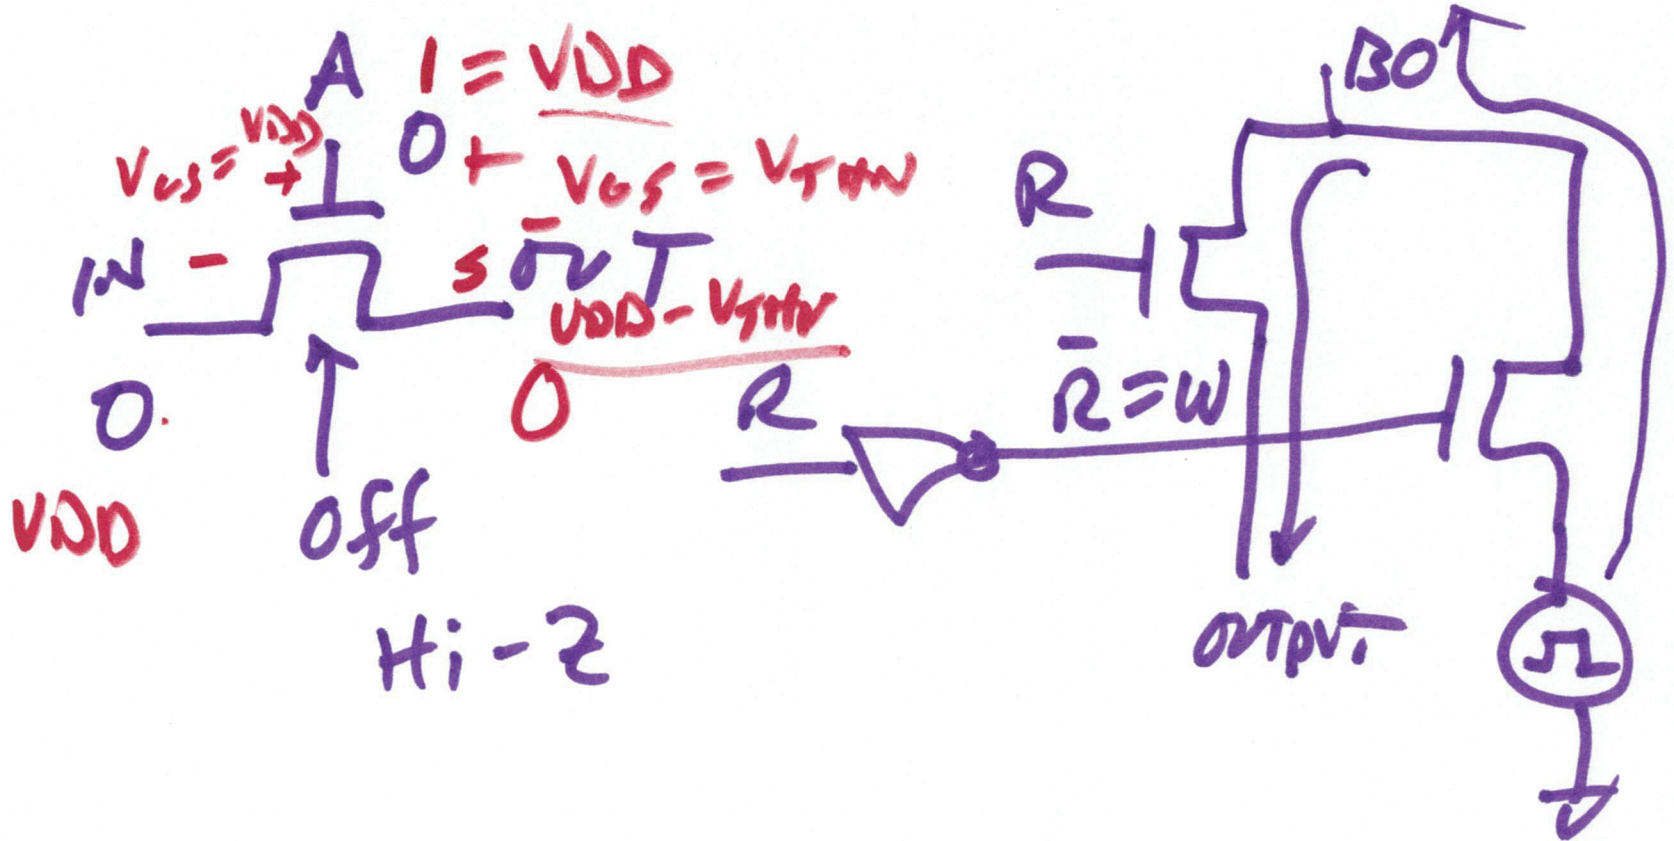 A 1 = VDD
0
VGS = VDD
+
+ VGS = VTHN
-
IN - S OUT
VDD - VTHN
0
0
VDD
Off
Hi-Z
R
R̄ = W
R
BO
OUTPUT